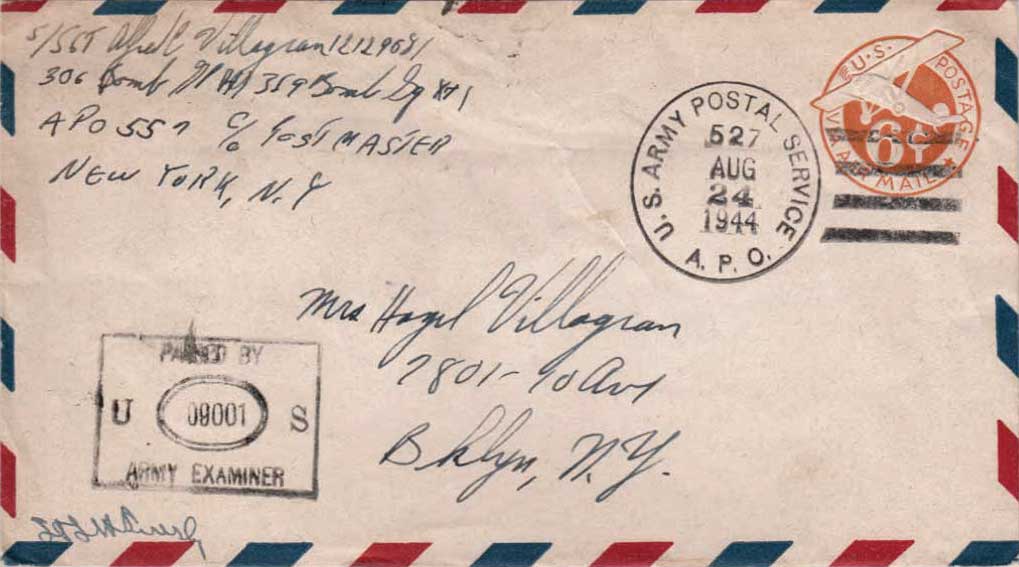 S/SGT Villagran 12129681
306 Bomb 359 Bomb Sq
APO 557 C/o POSTMASTER
NEW YORK, N.Y
U.S. ARMY POSTAL SERVICE
527
AUG
24
1944
A.P.O.
U.S. POSTAGE
6
VIA AIR MAIL
Mrs Hazel Villagran
2801-
Bklyn, N.Y.
PASSED BY
U 09001 S
ARMY EXAMINER